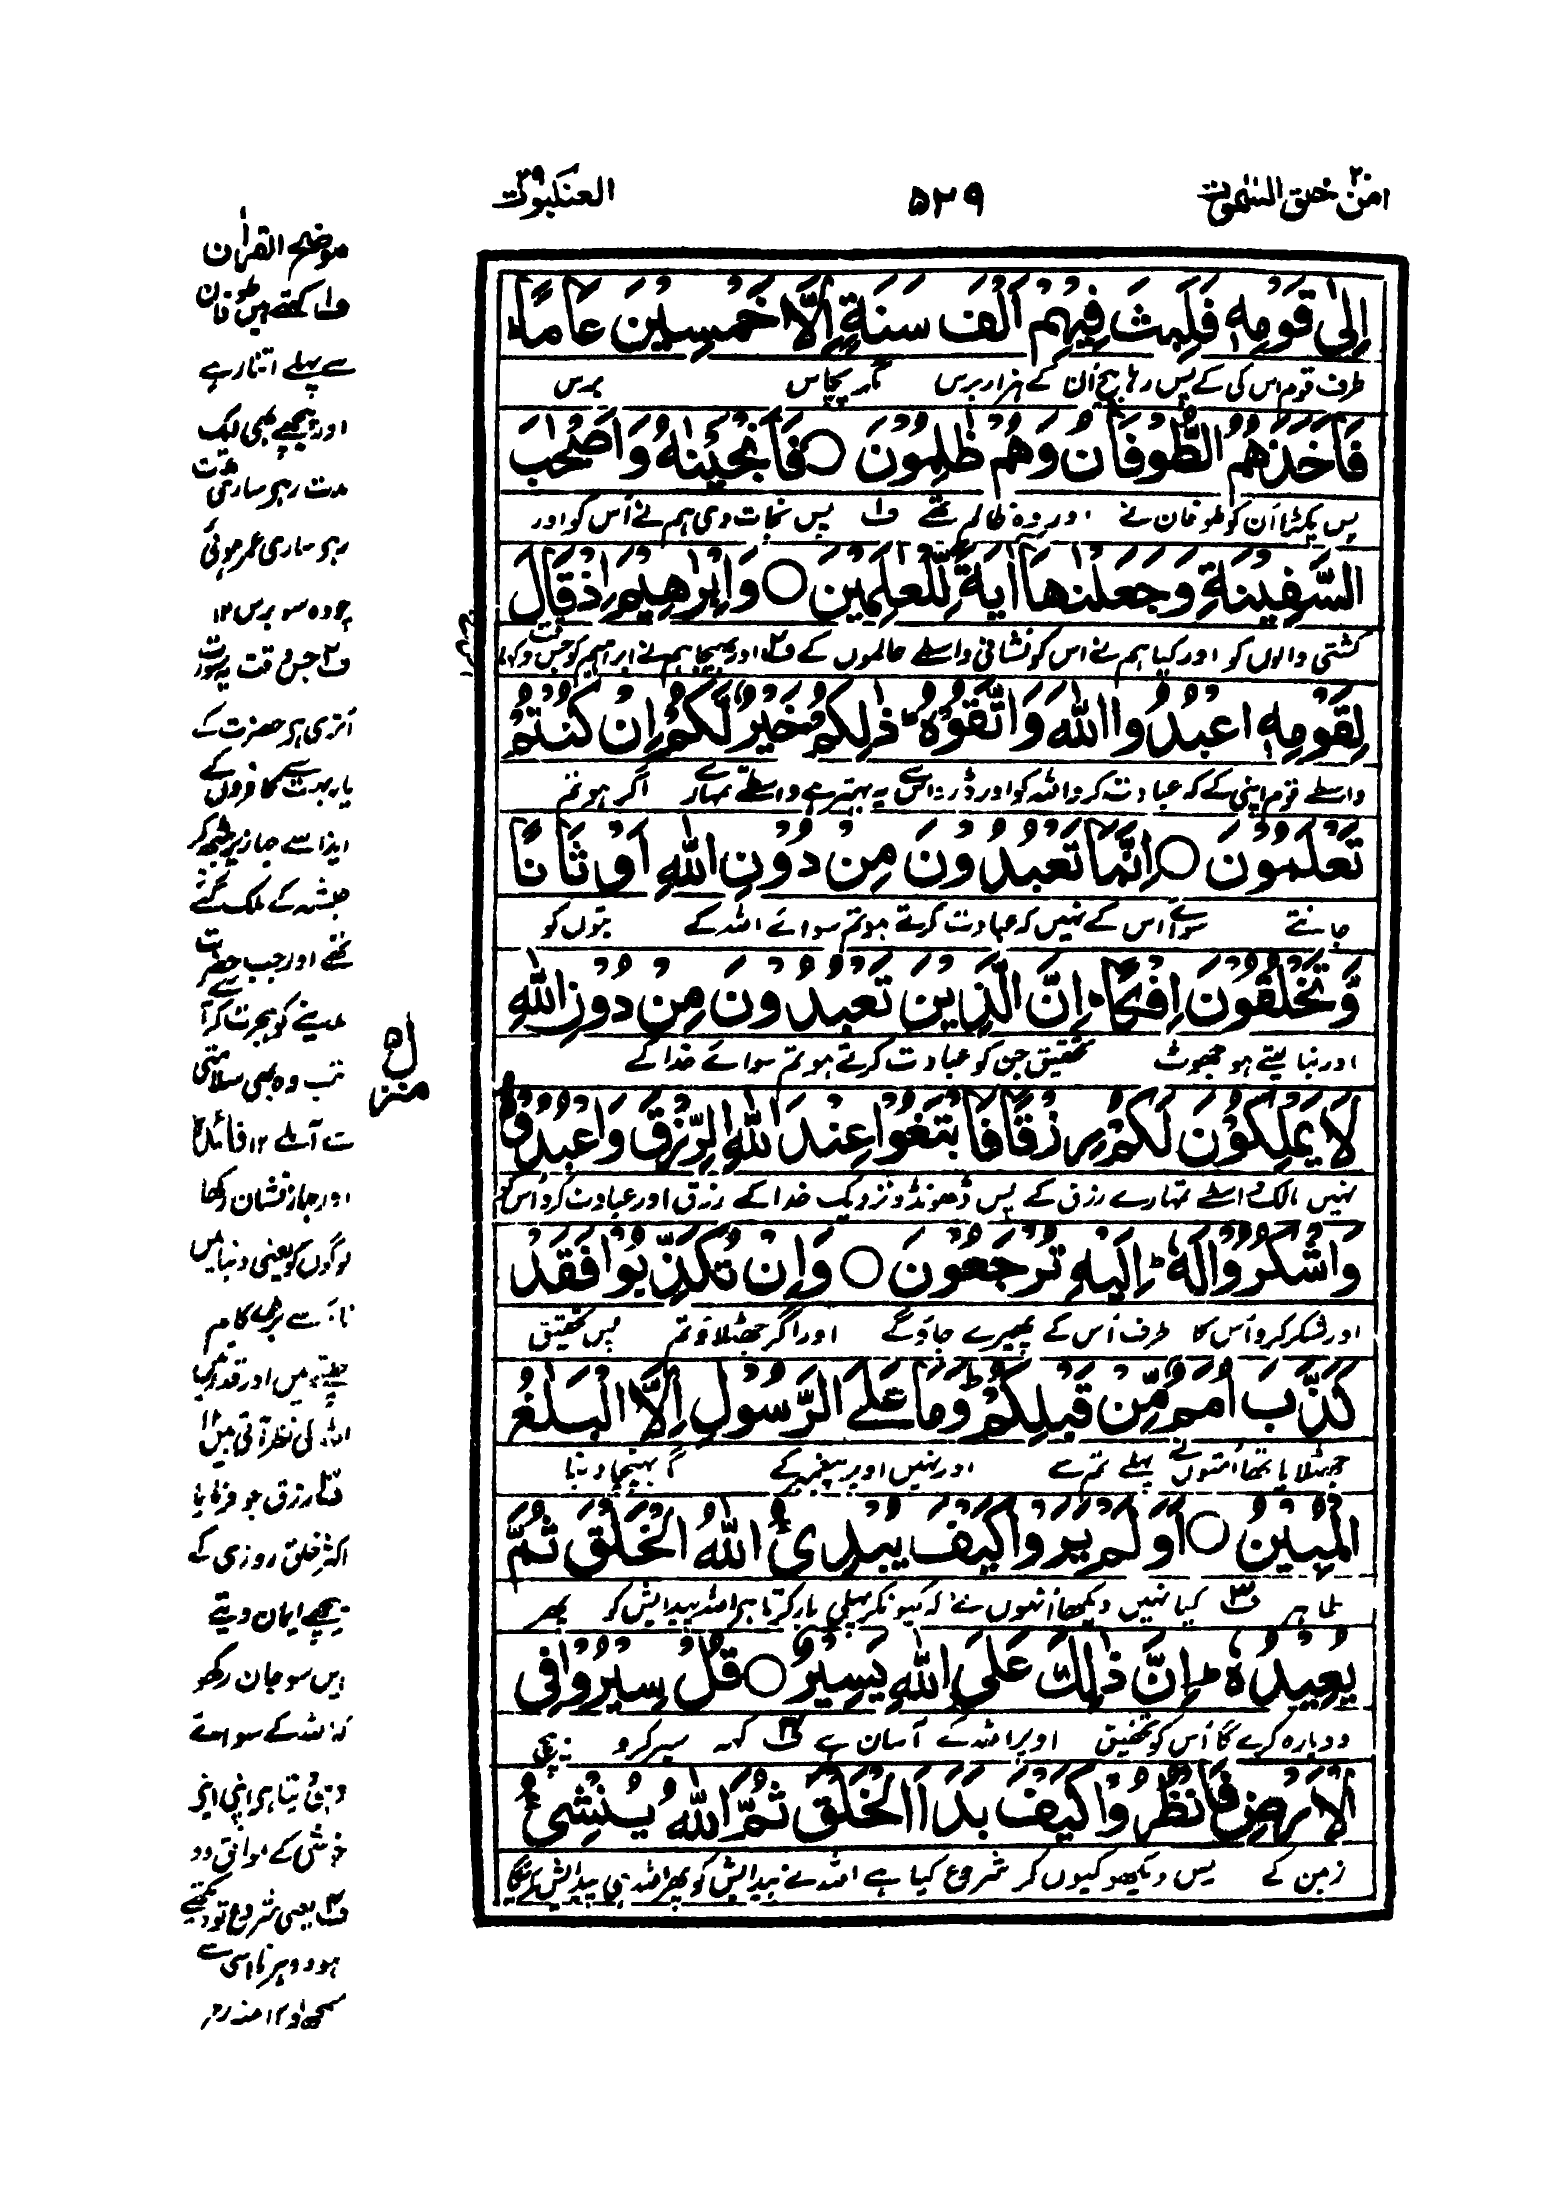 امن خلق السمٰوٰت ۲۰
۵۲۹
العنکبوت ۲۹
اِلٰى قَوْمِهٖ فَلَبِثَ فِيْهِمْ اَلْفَ سَنَةٍ اِلَّا خَمْسِيْنَ عَامًا ؕ
طرف قوم اس کی کے پس رہا بیچ اُن کے ہزار برس مگر پچاس برس
فَاَخَذَهُمُ الطُّوْفَانُ وَهُمْ ظٰلِمُوْنَ ○ فَاَنْجَيْنٰهُ وَاَصْحٰبَ
پس پکڑا اُن کو طوفان نے اور وہ ظالم تھے ف۱ پس نجات دی ہم نے اُس کو اور
السَّفِيْنَةِ وَجَعَلْنٰهَاۤ اٰيَةً لِّلْعٰلَمِيْنَ ○ وَاِبْرٰهِيْمَ اِذْ قَالَ
کشتی والوں کو اور کیا ہم نے اس کو نشانی واسطے عالموں کے ف۲ اور بھیجا ہم نے ابراہیم کو جس وقت کہا
لِقَوْمِهٖ اعْبُدُوا اللّٰهَ وَاتَّقُوْهُ ؕ ذٰلِكُمْ خَيْرٌ لَّكُمْ اِنْ كُنْتُمْ
واسطے قوم اپنی کے کہ عبادت کرو اللہ کو اور ڈرو اس سے یہ بہتر ہے واسطے تمہارے اگر ہو تم
تَعْلَمُوْنَ ○ اِنَّمَا تَعْبُدُوْنَ مِنْ دُوْنِ اللّٰهِ اَوْثَانًا
جانتے سوائے اس کے نہیں کہ عبادت کرتے ہو تم سوائے اللہ کے بتوں کو
وَّتَخْلُقُوْنَ اِفْكًا ؕ اِنَّ الَّذِيْنَ تَعْبُدُوْنَ مِنْ دُوْنِ اللّٰهِ
اور بنا لیتے ہو جھوٹ تحقیق جن کو عبادت کرتے ہو تم سوائے خدا کے
لَا يَمْلِكُوْنَ لَكُمْ رِزْقًا فَابْتَغُوْا عِنْدَ اللّٰهِ الرِّزْقَ وَاعْبُدُوْهُ
نہیں مالک واسطے تمہارے رزق کے پس ڈھونڈو نزدیک خدا کے رزق اور عبادت کرو اُس کو
وَاشْكُرُوْا لَهٗ ؕ اِلَيْهِ تُرْجَعُوْنَ ○ وَاِنْ تُكَذِّبُوْا فَقَدْ
اور شکر کرو اُس کا طرف اُس کے پھیرے جاؤ گے اور اگر جھٹلاؤ تم پس تحقیق
كَذَّبَ اُمَمٌ مِّنْ قَبْلِكُمْ ؕ وَمَا عَلَى الرَّسُوْلِ اِلَّا الْبَلٰغُ
جھٹلایا تھا اُمتوں نے پہلے تم سے اور نہیں اوپر پیغمبر کے مگر پہنچا دینا
الْمُبِيْنُ ○ اَوَلَمْ يَرَوْا كَيْفَ يُبْدِئُ اللّٰهُ الْخَلْقَ ثُمَّ
ظاہر ف۳ کیا نہیں دیکھا اُنہوں نے کہ کیونکر پہلی بار کرتا ہے اللہ پیدایش کو پھر
يُعِيْدُهٗ ؕ اِنَّ ذٰلِكَ عَلَى اللّٰهِ يَسِيْرٌ ○ قُلْ سِيْرُوْا فِى
دوبارہ کرے گا اُس کو تحقیق اوپر اللہ کے آسان ہے ف۴ کہہ سیر کرو بیچ
الْاَرْضِ فَانْظُرُوْا كَيْفَ بَدَاَ الْخَلْقَ ثُمَّ اللّٰهُ يُنْشِئُ
زمین کے پس دیکھو کیوں کر شروع کیا ہے اللہ نے پیدایش کو پھر اللہ ہی
منزل ۵
موضح القرآن
ف۱ کہتے ہیں طوفان
سے پہلے اتنا رہے
اور پیچھے بھی ایک
مدت رہے ساری
ساری عمر ہوئی
چودہ سو برس ۱۲
ف۲ جس وقت یہ سورت
اُتری ہے حضرت کے
یار بہت سے کافروں کے
ایذا سے جہاز پر بیٹھ کر
حبشہ کے ملک گئے
تھے اور جب حضرت
مدینے کو ہجرت کر آئے
تب وہ بھی سلامتی
سے آ ملے ۱۲ فائدہ
اور جہاز نشان رکھا
لوگوں کو یعنی دنیا میں
ناؤ سے بڑے کام
چلتے ہیں اور قدرتیں
اللہ کی نظر آتی ہیں ۱۲
ف۳ رزق جو فرمایا
اکثر خلق روزی کے
پیچھے ایمان دیتے
ہیں سو جان رکھو
کہ اللہ کے سوائے
وہی دیتا ہے اپنی
خوشی کے موافق ۱۲
ف۴ یعنی شروع تو دیکھتے
ہو دوہرانا اسی سے
سمجھ لو ۱۲ منہ رح